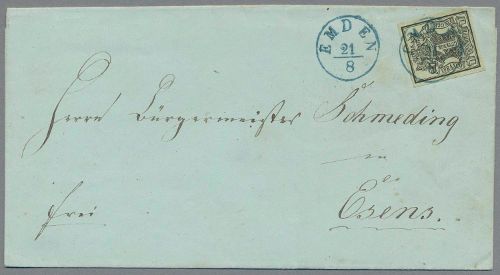 EMDEN
21
8
Herrn Bürgermeister Schmeding
in
Esens.
frei